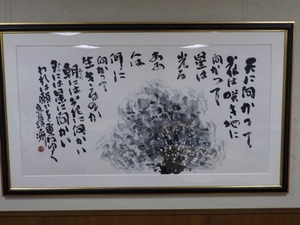 天に向かって
花は咲き地に
向かって
星は
光る
ああ
人は
何に
向かって
生きるのか
朝には花に向かい
夕には星に向かい
われは願いを重ねゆく